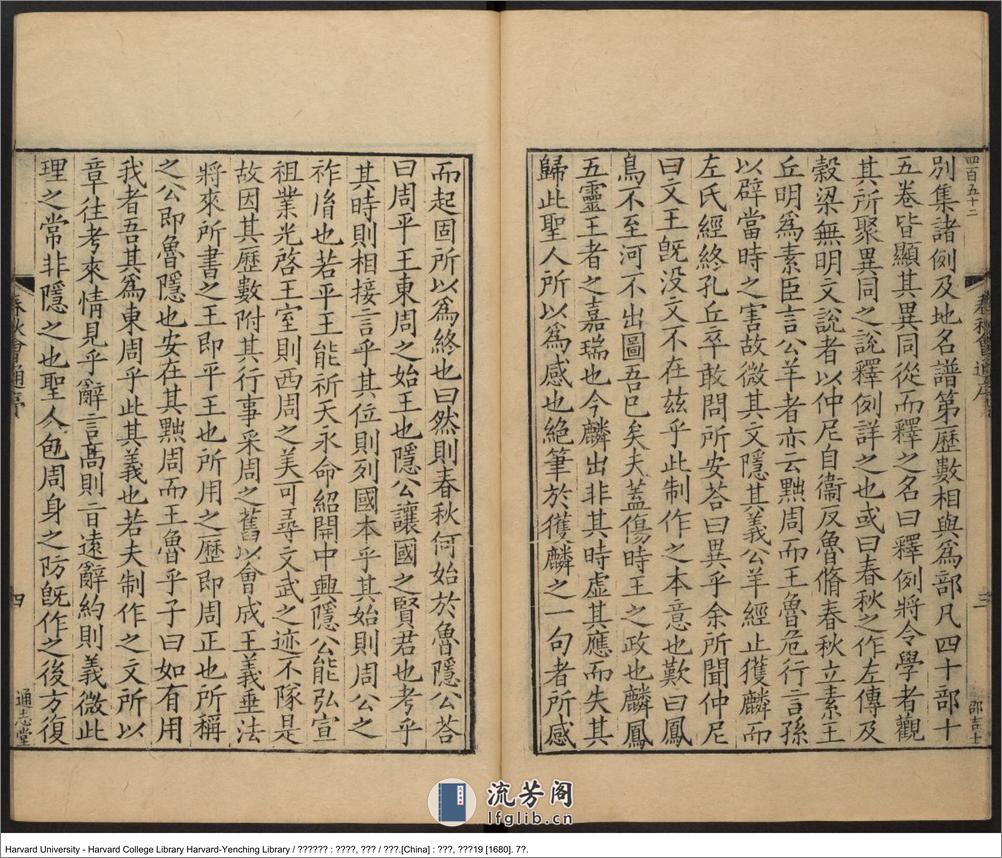 四百五十二
別集諸例及地名譜第歷數相與爲部凡四十部十
五卷皆顯其異同從而釋之名曰釋例將令學者觀
其所聚異同之說釋例詳之也或曰春秋之作左傳及
穀梁無明文說者以仲尼自衞反魯脩春秋立素王
丘明爲素臣言公羊者亦云黜周而王魯危行言孫
以辟當時之害故微其文隱其義公羊經止獲麟而
左氏經終孔丘卒敢問所安荅曰異乎余所聞仲尼
曰文王旣没文不在兹乎此制作之本意也歎曰鳳
鳥不至河不出圖吾已矣夫蓋傷時王之政也麟鳳
五靈王者之嘉瑞也今麟出非其時虚其應而失其
歸此聖人所以爲感也絶筆於獲麟之一句者所感
春秋會通序
邵吉士
而起固所以爲終也曰然則春秋何始於魯隱公荅
曰周平王東周之始王也隱公讓國之賢君也考乎
其時則相接言乎其位則列國本乎其始則周公之
祚胤也若平王能祈天永命紹開中興隱公能弘宣
祖業光啓王室則西周之美可尋文武之迹不隊是
故因其歷數附其行事采周之舊以會成王義垂法
將來所書之王即平王也所用之歷即周正也所稱
之公即魯隱也安在其黜周而王魯乎子曰如有用
我者吾其爲東周乎此其義也若夫制作之文所以
章往考來情見乎辭言高則旨遠辭約則義微此
理之常非隱之也聖人包周身之防旣作之後方復
春秋會通序
四
通志堂
流芳阁
lfglib.cn
Harvard University - Harvard College Library Harvard-Yenching Library / ?????? : ????, ??? / ???.[China] : ???, ???19 [1680]. 7?.